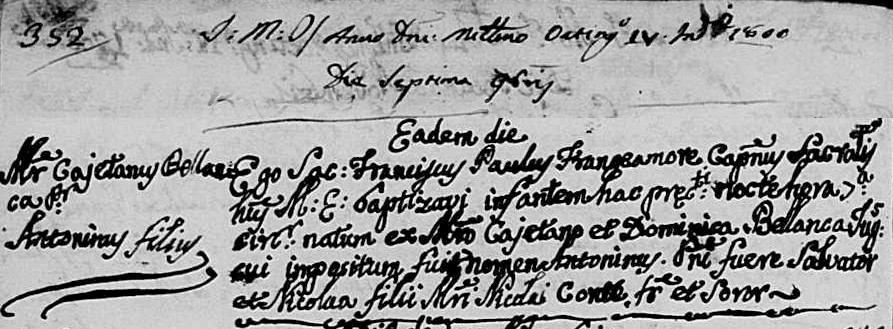 352 J: M: J/ Anno Dni: Millmo Octingo IV. Inde 1800
Die Septima 9bris
Eadem die
Mr Cajetanus Bellan
ca Pr
Antoninus filius
Ego Sac: Franciscus Paulus Frangiamore Capnus Sacralis
huius M: E: baptizavi infantem hac precti nocte hora 7a
circr natum ex Mro Cajetano et Dominica Belanca Jug:
cui impositum fuit nomen Antoninus. Pni fuere Salvator
et Nicolaa filii Mri Nicolai Conti, fr et Soror